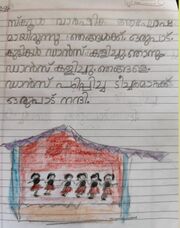 സ്കൂൾ വാർഷിക ആഘോഷ
മായിരുന്നു. ഞങ്ങൾക്ക് ഒരുപാട്
കുട്ടികൾ ഡാൻസ് കളിച്ചു. ഞാനും
ഡാൻസ് കളിച്ചു. ഞങ്ങളെ
ഡാൻസ് പഠിപ്പിച്ച ടീച്ചർമാർക്ക്
ഒരുപാട് നന്ദി.